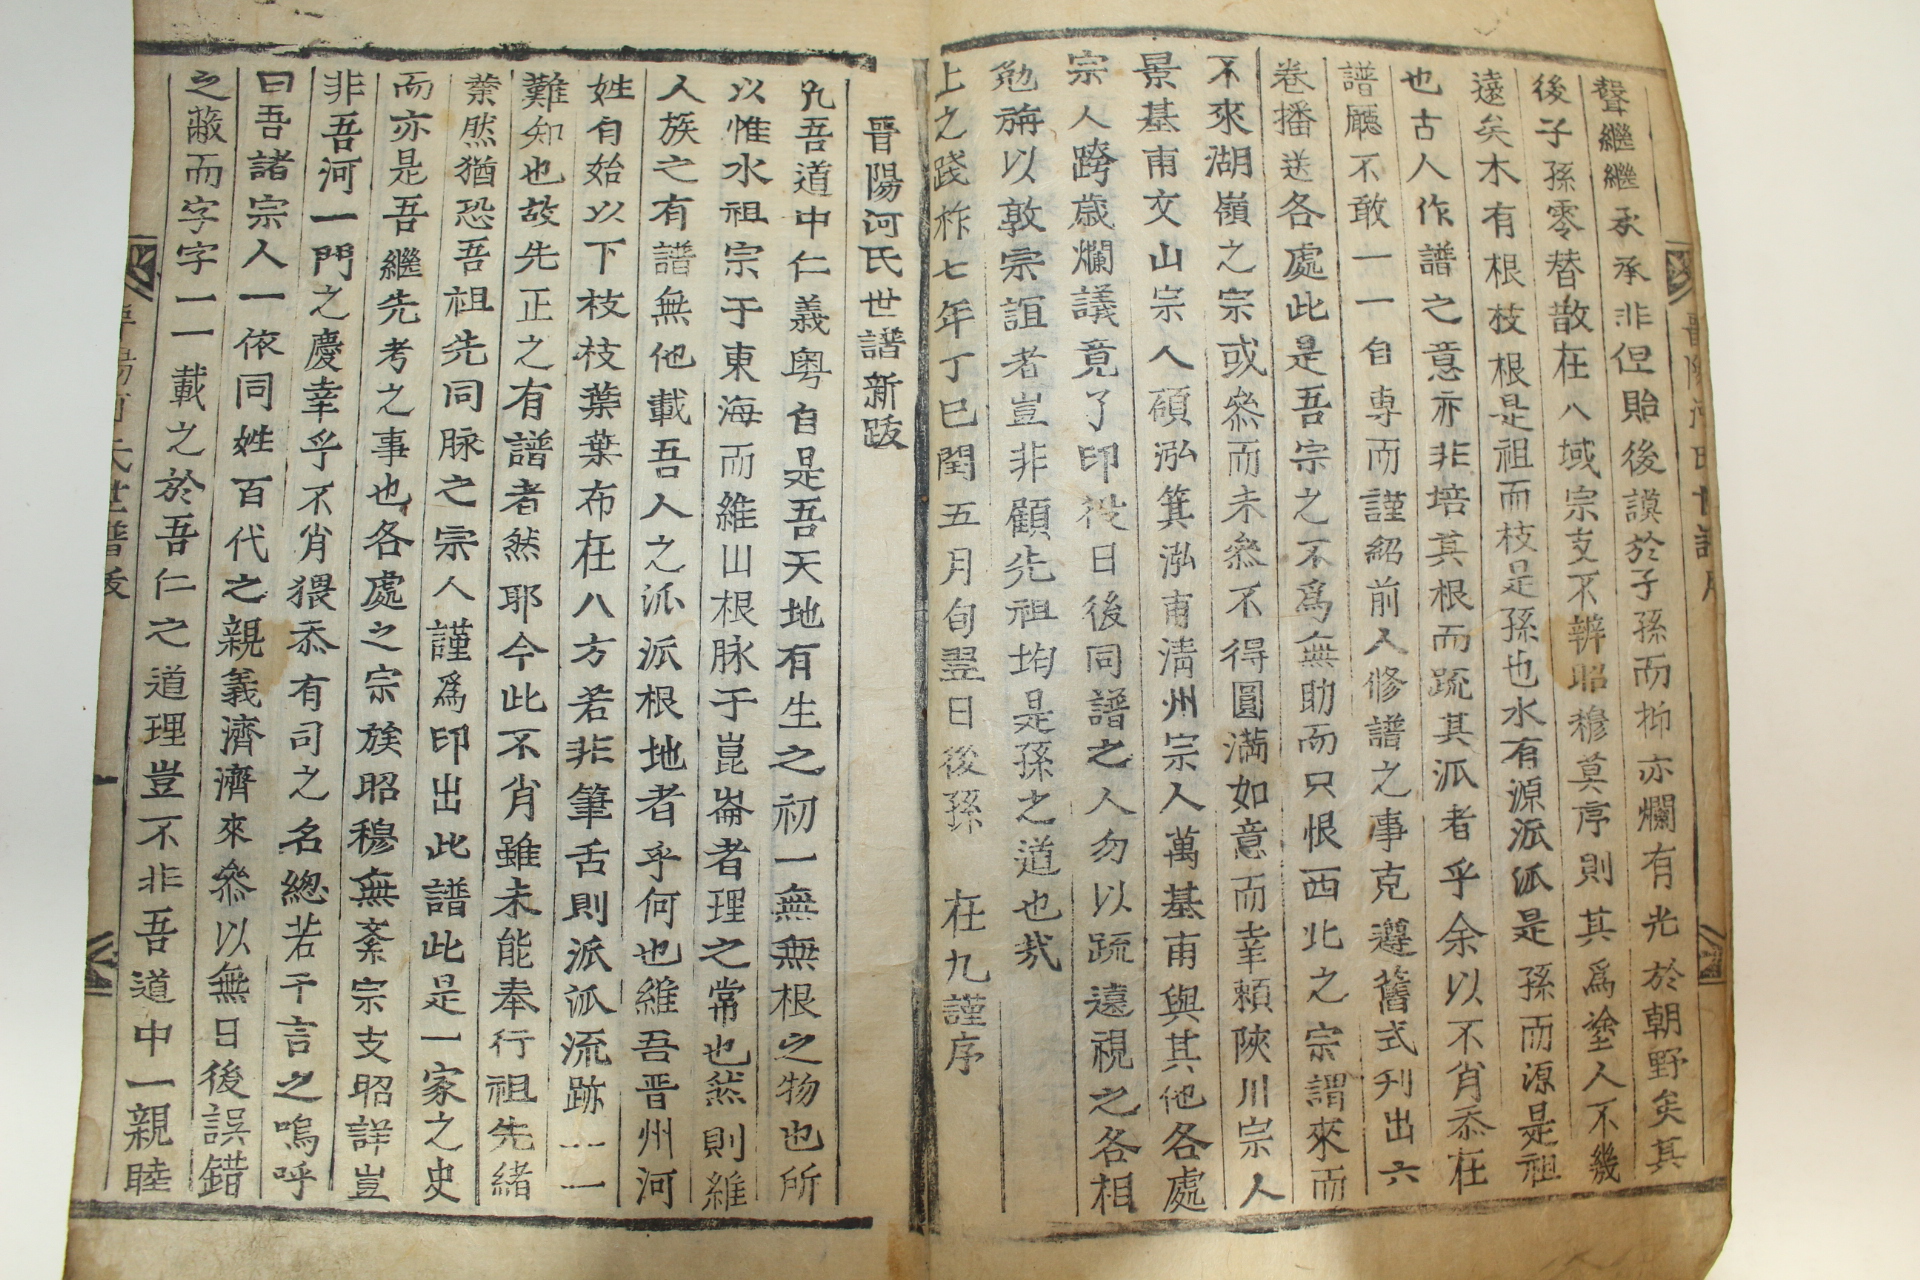 聲繼繼承承非但貽後謨於子孫而抑亦爛有光於朝野矣其
後子孫零替散在八域宗支不辨昭穆莫序則其爲塗人不幾
遠矣木有根枝根是祖而枝是孫也水有源派派是孫而源是祖
也古人作譜之意亦非培其根而疏其派者乎余以不肖忝在
譜廳不敢一一自専而謹紹前人修譜之事克遵舊式刋出六
卷播送各處此是吾宗之不爲無助而只恨西北之宗謂來而
不來湖嶺之宗或叅而未叅不得圓滿如意而幸頼陜川宗人
景基甫文山宗人碩泓箕泓甫清州宗人萬基甫與其他各處
宗人跨歲爛議竟了印役日後同譜之人勿以疏遠視之各相
勉旃以敦宗誼者豈非顧先祖均是孫之道也㢤
上之踐祚七年丁巳閏五月旬翌日後孫 在九謹序
晋陽河氏世譜序
晋陽河氏世譜新跋
凡吾道中仁義粤自是吾天地有生之初一無無根之物也所
以惟水祖宗于東海而維山根脉于崑崙者理之常也然則維
人族之有譜無他載吾人之派派根地者乎何也維吾晋州河
姓自始以下枝枝葉葉布在八方若非筆舌則派派流跡一一
難知也故先正之有譜者然耶今此不肖雖未能奉行祖先緒
業然猶恐吾祖先同脉之宗人謹爲印出此譜此是一家之史
而亦是吾繼先考之事也各處之宗族昭穆無紊宗支昭詳豈
非吾河一門之慶幸乎不肖猥忝有司之名總若干言之嗚呼
曰吾諸宗人一依同姓百代之親義濟濟來叅以無日後誤錯
之蔽而字字一一載之於吾仁之道理豈不非吾道中一親睦
晋陽河氏世譜跋 一